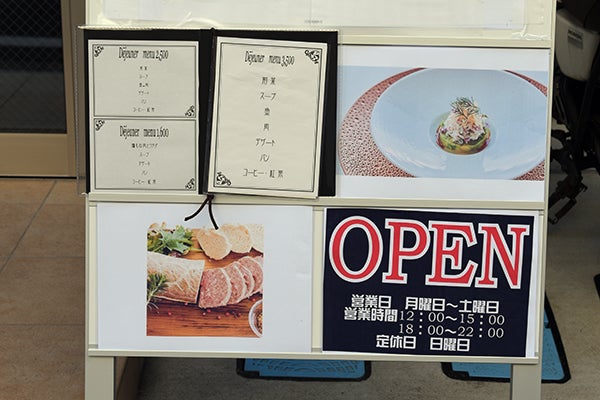 Déjeuner menu 2,500
野菜
スープ
魚or肉
デザート
パン
コーヒー・紅茶
Déjeuner menu 1,600
スープ
デザート
コーヒー・紅茶
Déjeuner menu 3,500
野菜
スープ
魚
肉
デザート
パン
コーヒー・紅茶
OPEN
営業日 月曜日～土曜日
営業時間 12：00～15：00
18：00～22：00
定休日 日曜日